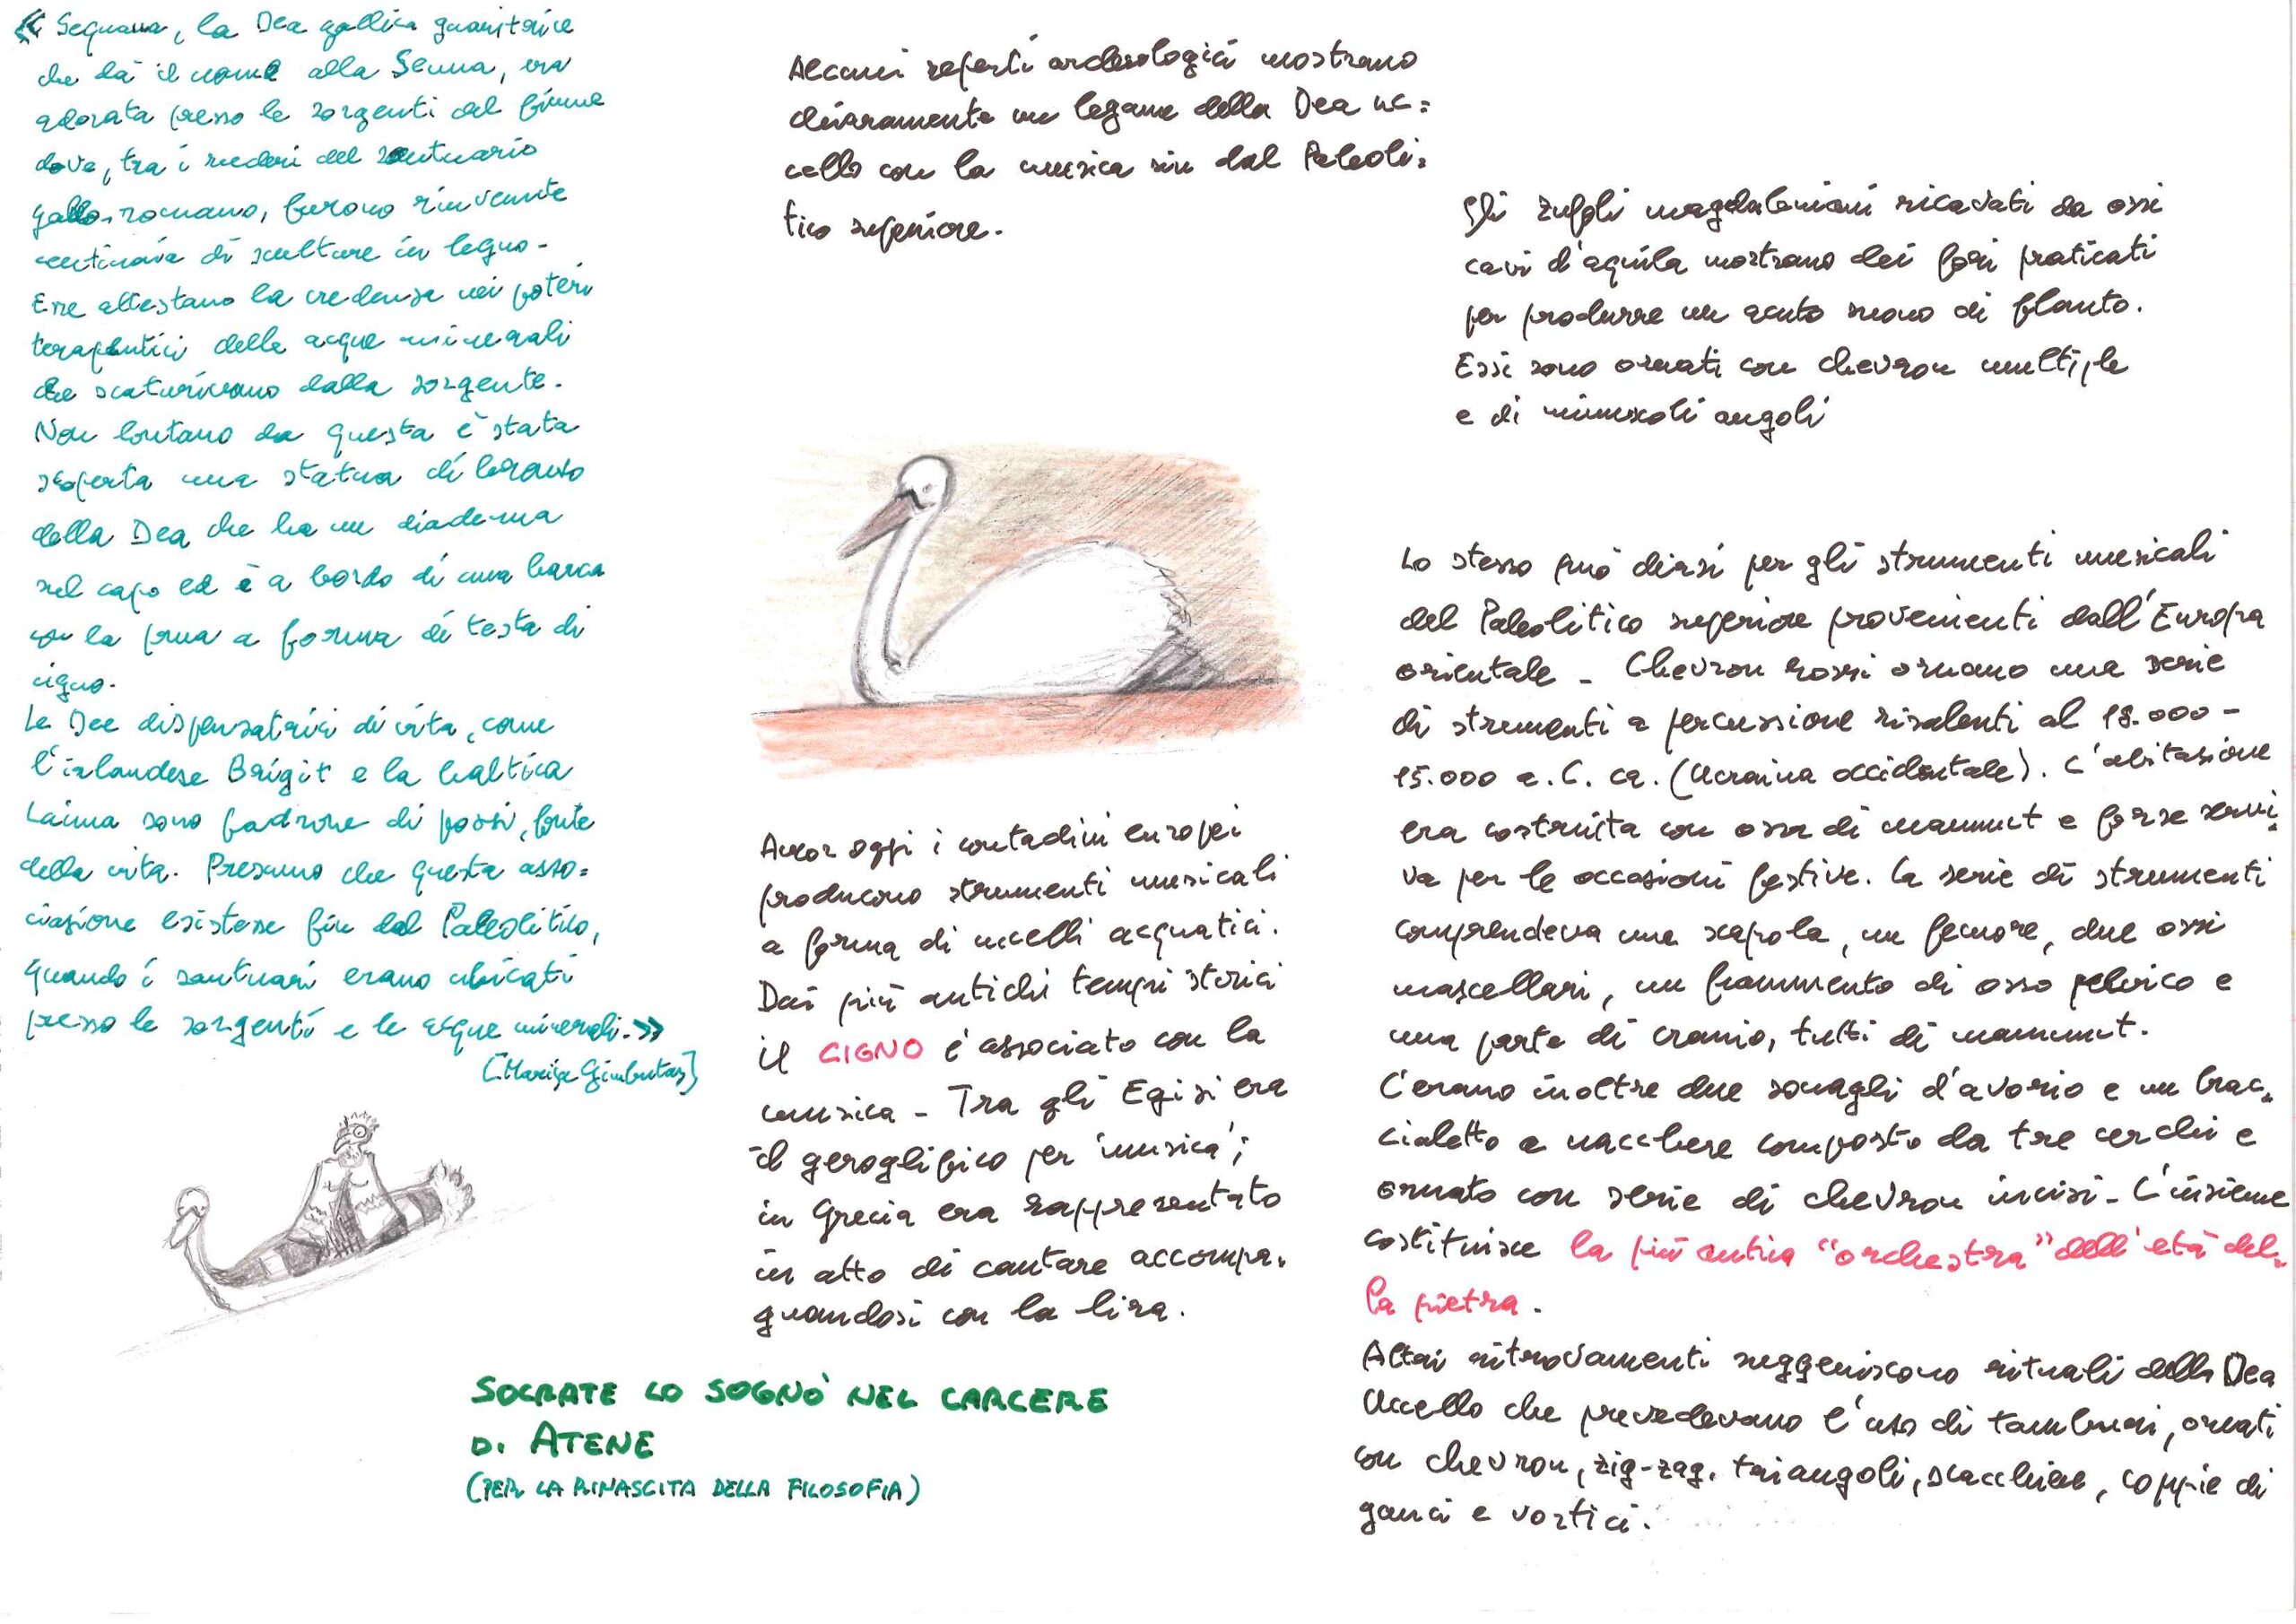 « Sequana, la Dea gallica guaritrice
che dà il nome alla Senna, era
adorata presso le sorgenti del fiume
dove, tra i ruderi del santuario
gallo-romano, furono rinvenute
centinaia di sculture in legno -
Esse attestano la credenza nei poteri
terapeutici delle acque minerali
che scaturivano dalla sorgente.
Non lontano da questa è stata
scoperta una statua di bronzo
della Dea che ha un diadema
sul capo ed è a bordo di una barca
con la prua a forma di testa di
cigno.
Le Dee dispensatrici di vita, come
l'irlandese Brigit e la baltica
Laima sono padrone di pozzi, fonte
della vita. Presumo che questa asso=
ciazione esistesse fin dal Paleolitico,
quando i santuari erano ubicati
presso le sorgenti e le acque minerali.»
[Marija Gimbutas]
Alcuni reperti archeologici mostrano
chiaramente un legame della Dea uc=
cello con la musica sin dal Paleoli=
tico superiore.
Ancor oggi i contadini europei
producono strumenti musicali
a forma di uccelli acquatici.
Dai più antichi tempi storici
il CIGNO è associato con la
musica - Tra gli Egizi era
il geroglifico per 'musica';
in Grecia era rappresentato
in atto di cantare accompa=
gnandosi con la lira.
SOCRATE LO SOGNÒ NEL CARCERE
DI ATENE
(PER LA RINASCITA DELLA FILOSOFIA)
Gli zufoli magdaleniani ricavati da ossi
cavi d'aquila mostrano dei fori praticati
per produrre un acuto suono di flauto.
Essi sono ornati con chevron multiple
e di minuscoli angoli
Lo stesso può dirsi per gli strumenti musicali
del Paleolitico superiore provenienti dall'Europa
orientale - Chevron rossi ornano una serie
di strumenti a percussione risalenti al 18.000 -
15.000 a.C. ca. (Ucraina occidentale). L'abitazione
era costruita con ossa di mammut e forse servi=
va per le occasioni festive. La serie di strumenti
comprendeva una scapola, un femore, due ossi
mascellari, un frammento di osso pelvico e
una parte di cranio, tutti di mammut.
C'erano inoltre due sonagli d'avorio e un brac=
cialetto a nacchere composto da tre cerchi e
ornato con serie di chevron incisi - L'insieme
costituisce la più antica "orchestra" dell'età del=
la pietra.
Altri ritrovamenti suggeriscono rituali della Dea
Uccello che prevedevano l'uso di tamburi, ornati
con chevron, zig-zag, triangoli, scacchiere, coppie di
ganci e vortici.